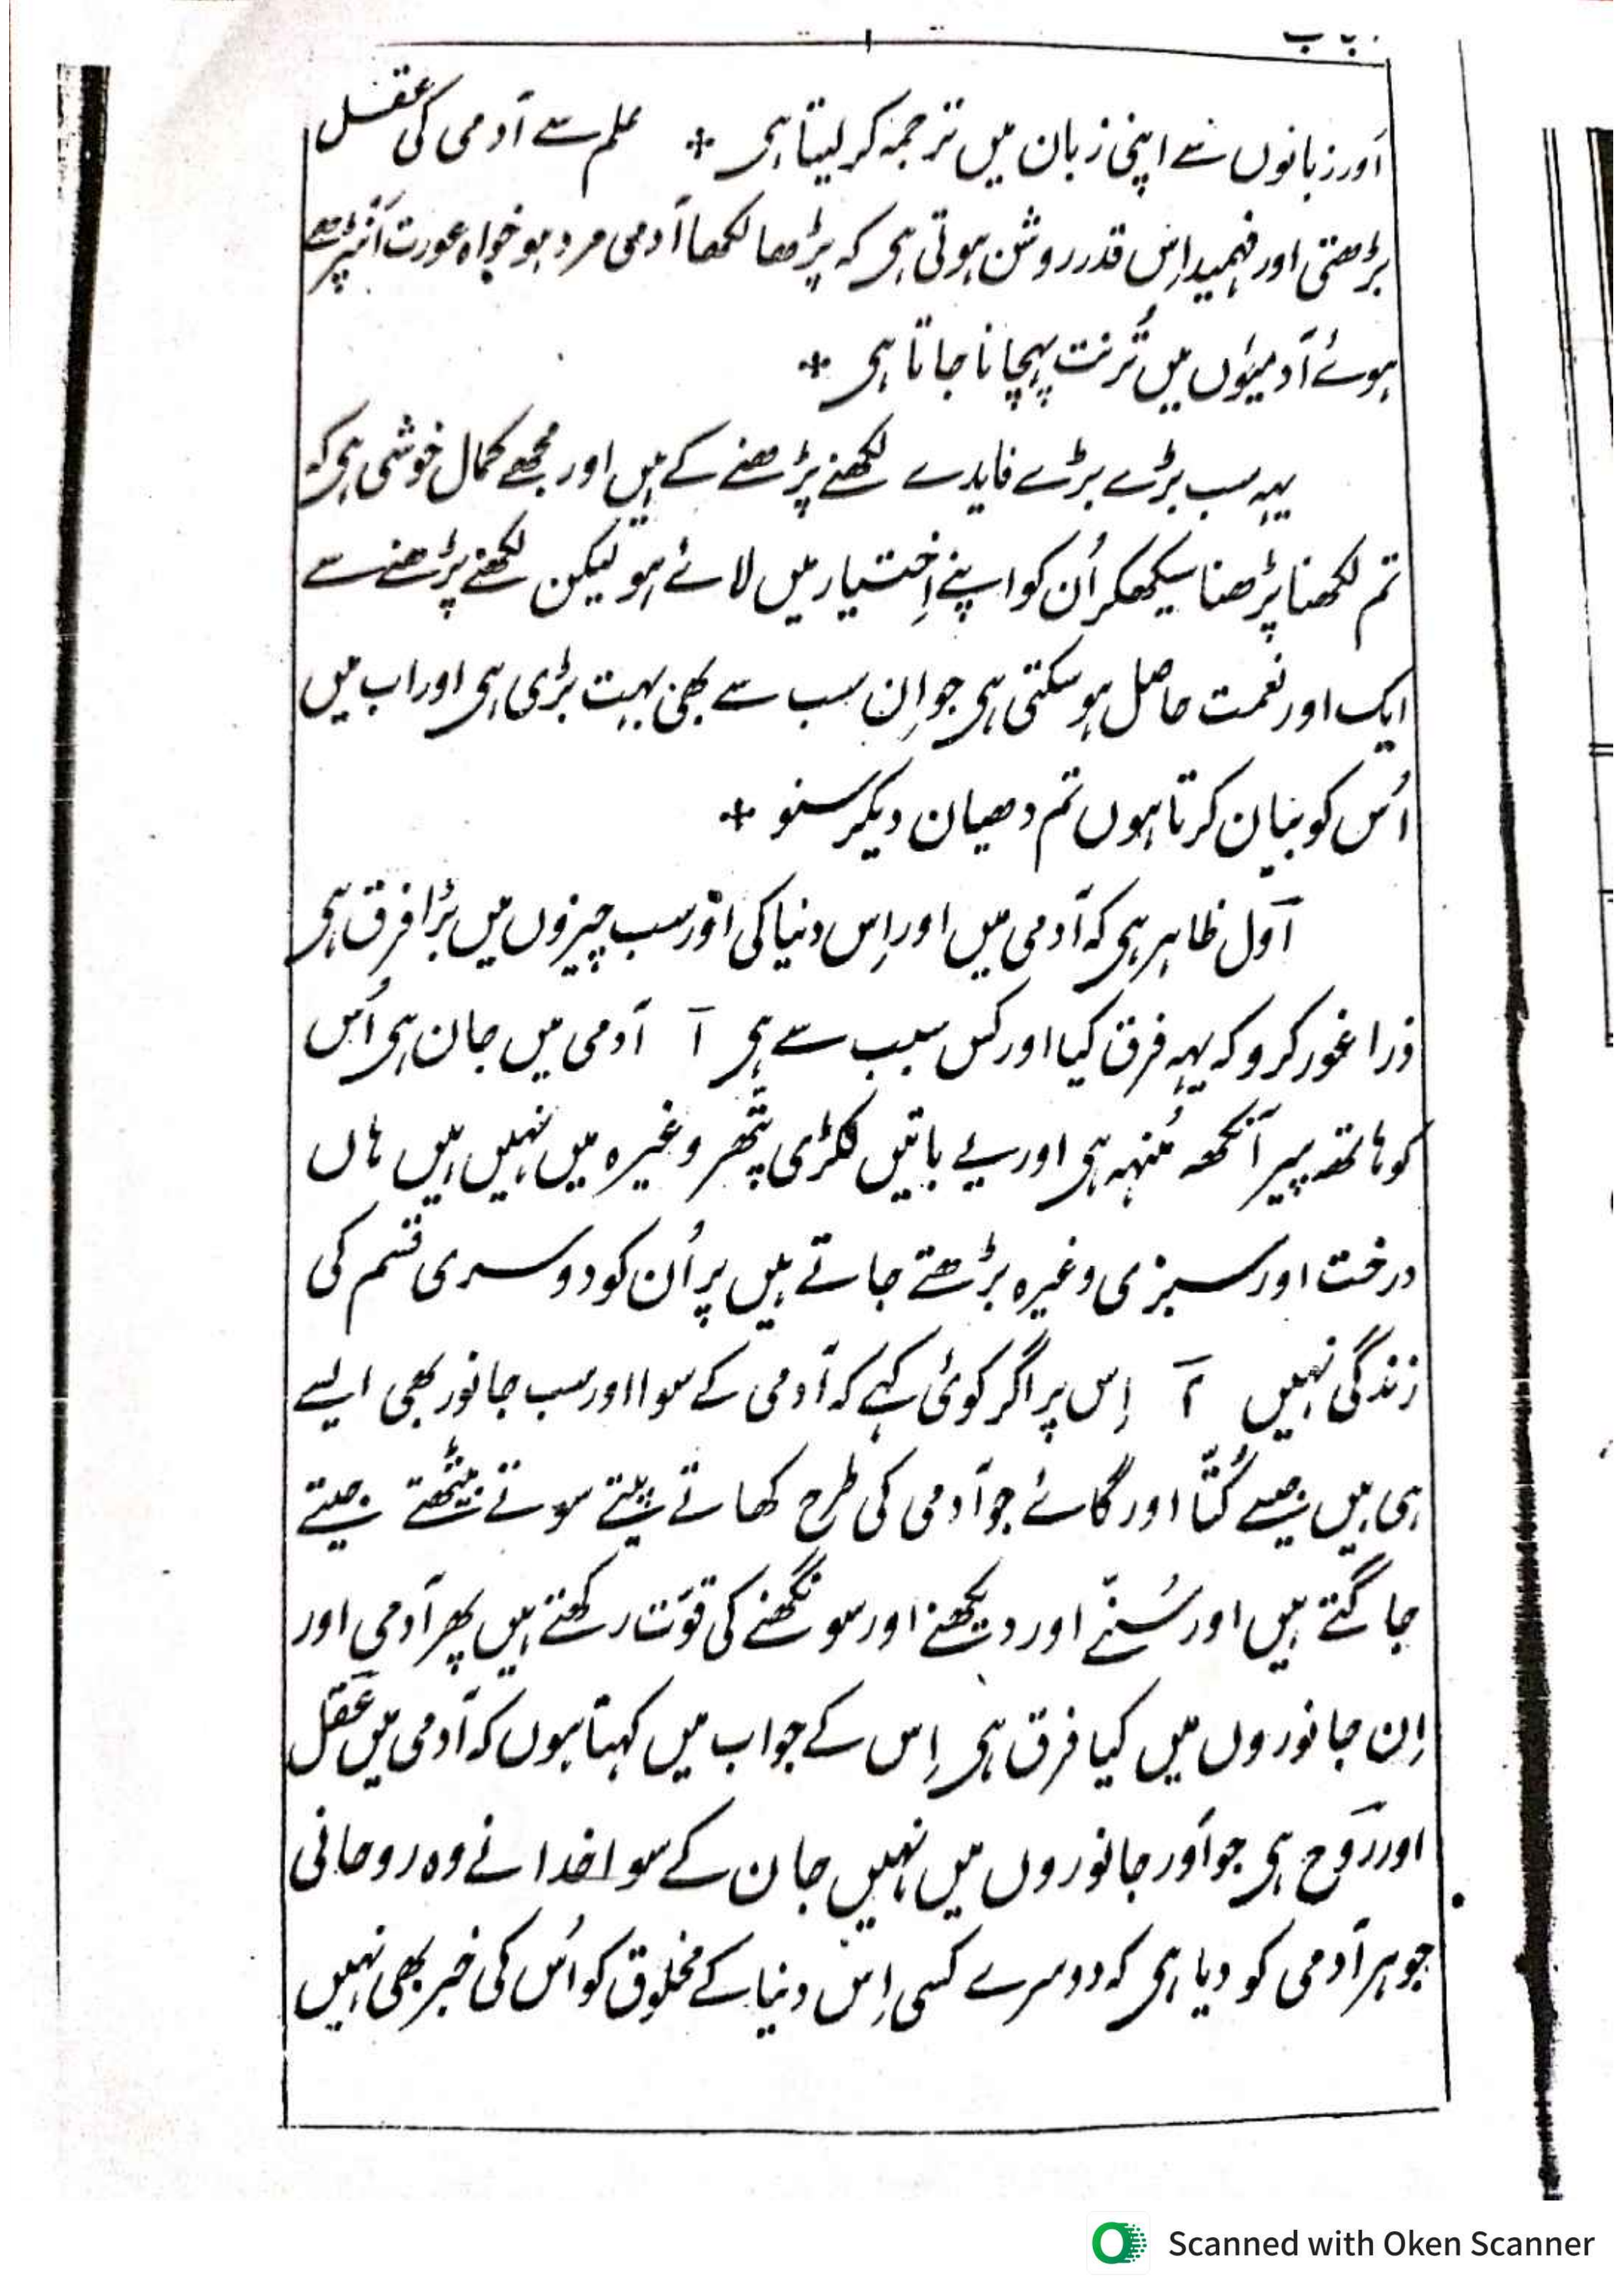 باب
اَور زبانوں سے اپنی زبان میں ترجمہ کر لیتا ہی ٭ علم سے آدمی کی عقل
بڑھتی اور فہمید اِس قدر روشن ہوتی ہی کہ پڑھا لکھا آدمی مرد ہو خواہ عورت اَنپڑھے
ہوئے آدمیوں میں تُرنت پہچانا جاتا ہی ٭
یہہ سب بڑے بڑے فایدے لکھنے پڑھنے کے ہیں اور مجھے کمال خوشی ہی کہ
تم لکھنا پڑھنا سیکھکر اُن کو اپنے اِختیار میں لائے ہو لیکن لکھنے پڑھنے سے
ایک اور نعمت حاصل ہو سکتی ہی جو اِن سب سے بھی بہت بڑی ہی اور اب میں
اُس کو بیان کرتا ہوں تم دھیان دیکر سنو ٭
اَول ظاہر ہی کہ آدمی میں اور اِس دنیا کی اَور سب چیزوں میں بڑا فرق ہی
ذرا غور کرو کہ یہہ فرق کیا اور کس سبب سے ہی آ آدمی میں جان ہی اُس
کو ہاتھہ پیر آنکھہ مُنہہ ہی اور یے باتیں لکڑی پتّھر وغیرہ میں نہیں ہیں ہاں
درخت اور سبزی وغیرہ بڑھتے جاتے ہیں پر اُن کو دوسری قسم کی
زندگی نہیں ۲ اِس پر اگر کوئی کہے کہ آدمی کے سوا اور سب جانور بھی ایسے
ہی ہیں جیسے کُتّا اور گائے جو آدمی کی طرح کھاتے پیتے سوتے بیٹھتے جیتے
جاگتے ہیں اور سُنّے اور دیکھنے اور سونگھنے کی قوّت رکھتے ہیں پھر آدمی اور
اِن جانوروں میں کیا فرق ہی اِس کے جواب میں کہتا ہوں کہ آدمی میں عَقل
اور رَوح ہی جو اَور جانوروں میں نہیں جان کے سوا خدا نے وہ روحانی
جوہر آدمی کو دیا ہی کہ دوسرے کسی اِس دنیا کے مخلوق کو اُس کی خبر بھی نہیں
Scanned with Oken Scanner